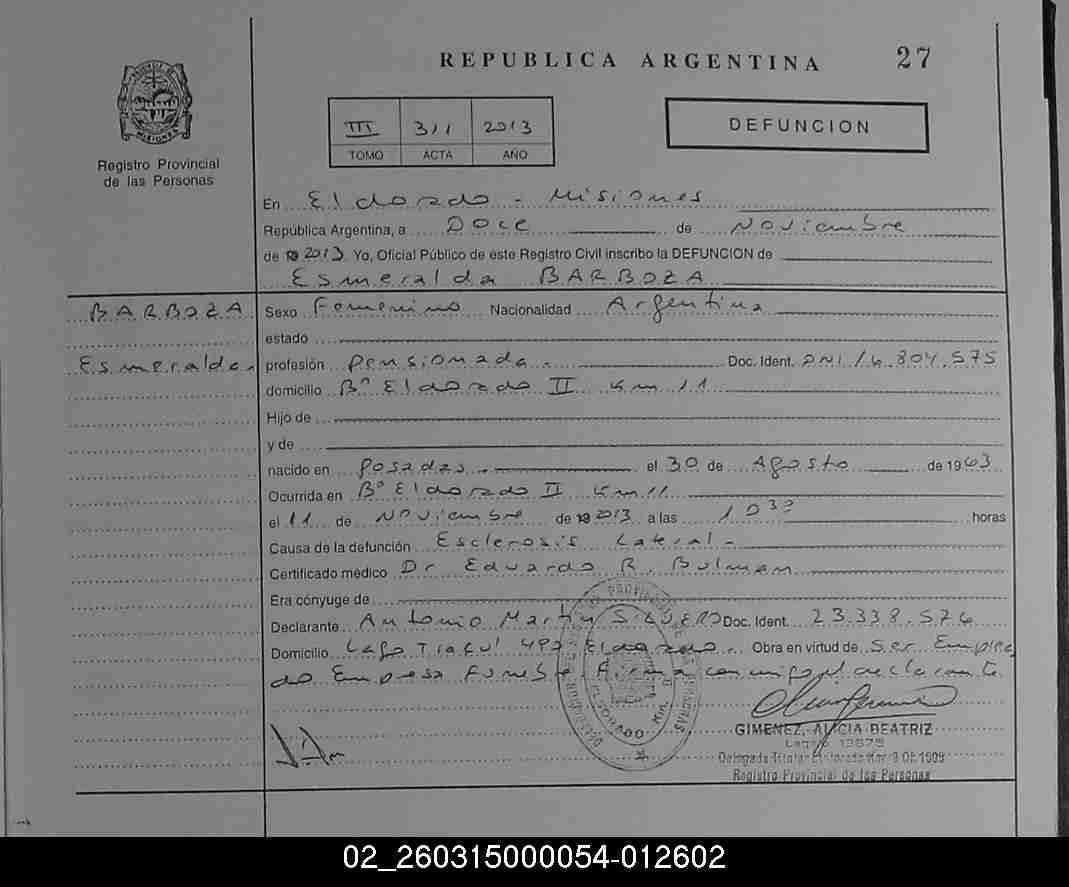 REPUBLICA ARGENTINA 27
III 311 2013
TOMO ACTA AÑO
DEFUNCION
Registro Provincial
de las Personas
En Eldorado - Misiones
República Argentina, a DOCE de Noviembre
de 19 2013. Yo, Oficial Público de este Registro Civil inscribo la DEFUNCION de
Esmeralda BARBOZA
BARBOZA
Esmeralda.
Sexo Femenino Nacionalidad Argentina
estado
profesión pensionada. Doc. Ident. DNI 16.804.575
domicilio Bº Eldorado II Km 11
Hijo de
y de
nacido en Posadas - el 30 de Agosto de 1963
Ocurrida en Bº Eldorado II Km 11
el 11 de Noviembre de 19 2013 a las horas
Causa de la defunción Esclerosis Lateral -
Certificado médico Dr Eduardo R. Bulman
Era cónyuge de
Declarante Antonio Martin SILVERO Doc. Ident. 23.338.576
Domicilio Lago 492 - Eldorado. Obra en virtud de Ser Emplea
do Empresa Funebre. Firma conmigo el declarante.
GIMENEZ, ALICIA BEATRIZ
Delegada Titular Eldorado Km. 9 Of. 1909
Registro Provincial de las Personas
02_260315000054-012602